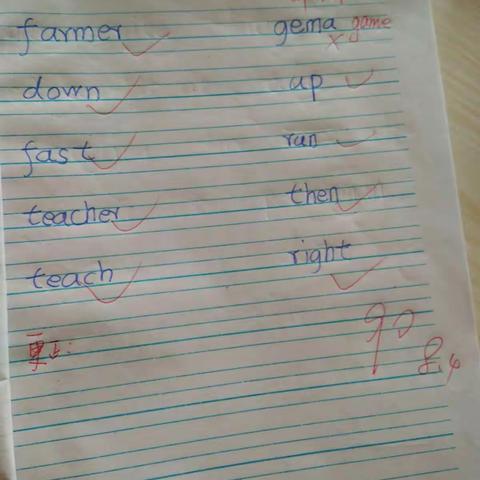 farmer gema game
down up
fast ran
teacher then
teach right
90
8.4